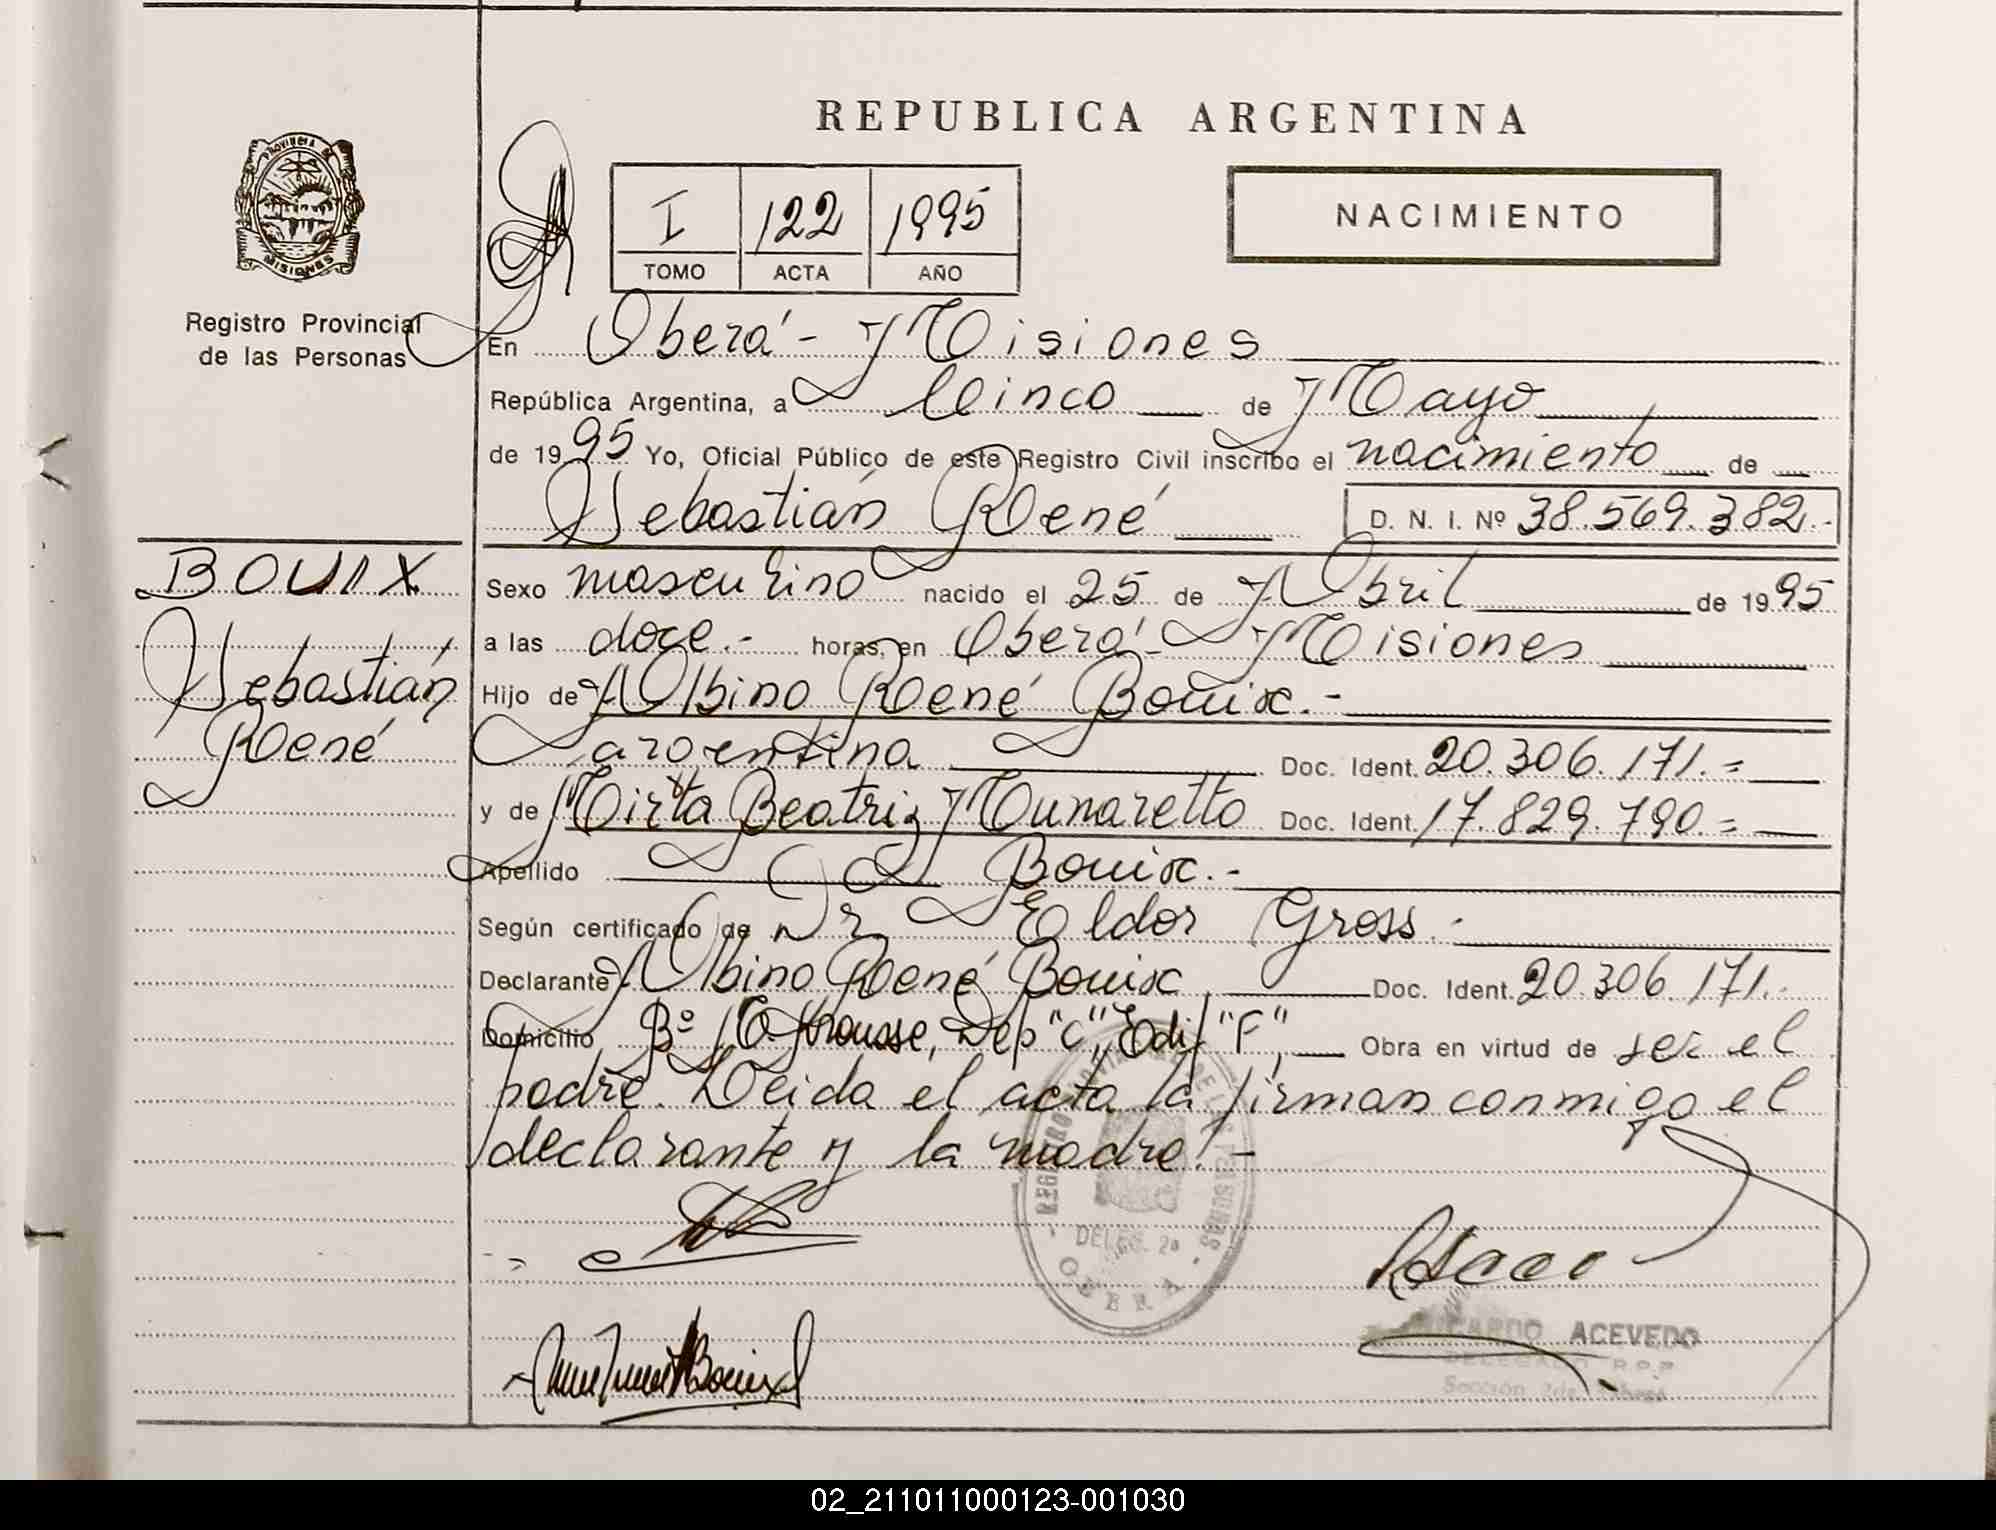 REPUBLICA ARGENTINA
PROVINCIA DE
MISIONES
Registro Provincial
de las Personas
I 122 1995
TOMO ACTA AÑO
NACIMIENTO
En Oberá - Misiones
República Argentina, a Cinco de Mayo
de 1995 Yo, Oficial Público de este Registro Civil inscribo el nacimiento de
Sebastián René D. N. I. Nº 38.569.382.-
BOUIX
Sebastián
René
Sexo masculino nacido el 25 de Abril de 1995
a las doce.- horas, en Oberá - Misiones
Hijo de Albino René Bouix.-
argentina Doc. Ident. 20.306.171.=
y de Mirta Beatriz Munaretto Doc. Ident. 17.829.790.=
Apellido Bouix.-
Según certificado de Dr. Eldor Gross.-
Declarante Albino René Bouix Doc. Ident. 20.306.171.-
Domicilio Bº O. Krausse, Dep "C", Edif "F", Obra en virtud de ser el
padre. Leida el acta la firman conmigo el
declarante y la madre.-
DELEG. 2ª
OBERA
RICARDO ACEVEDO
DELEGADO R.P.P.
02_211011000123-001030